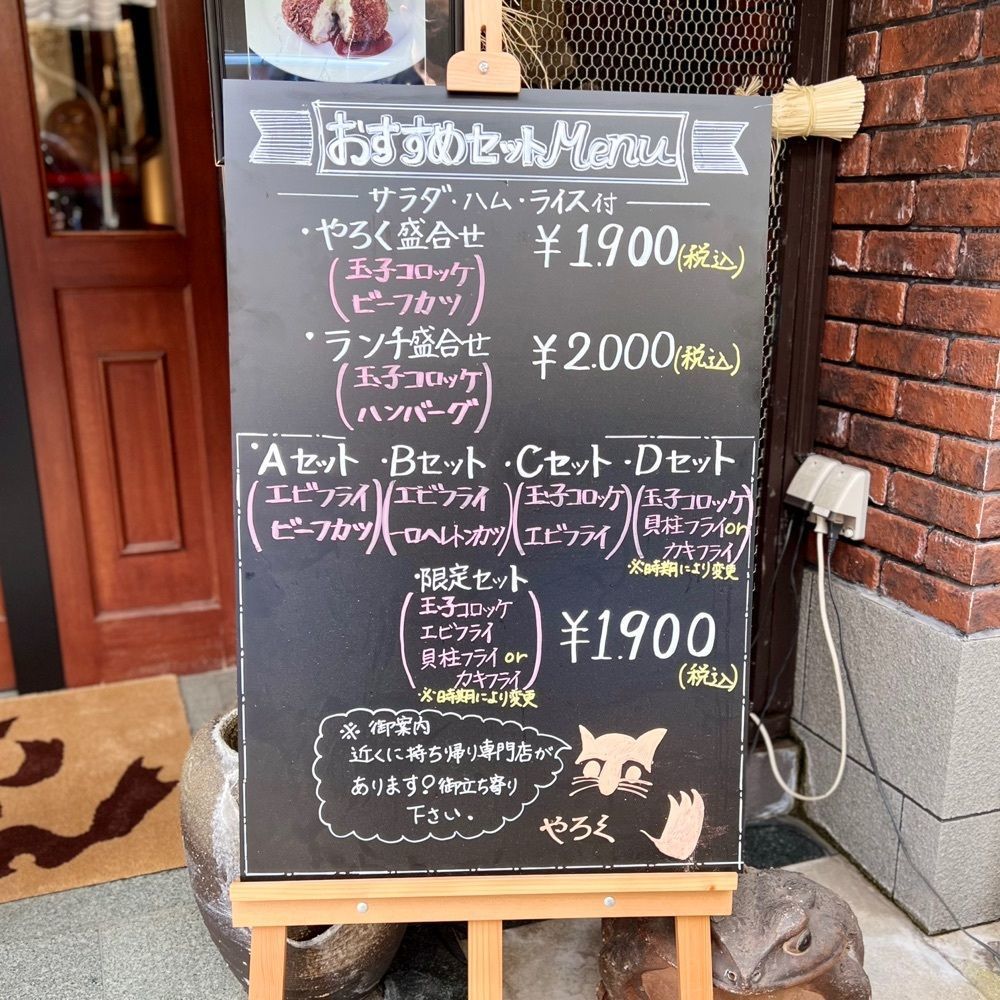 おすすめセットMenu
サラダ・ハム・ライス付
・やろく盛合せ ¥1.900(税込)
(玉子コロッケ
ビーフカツ)
・ランチ盛合せ ¥2.000(税込)
(玉子コロッケ
ハンバーグ)
・Aセット ・Bセット ・Cセット ・Dセット
(エビフライ (エビフライ (玉子コロッケ (玉子コロッケ
ビーフカツ) 一口ヘレトンカツ) エビフライ) 貝柱フライor
カキフライ)
※時期により変更
・限定セット
(玉子コロッケ
エビフライ
貝柱フライor
カキフライ)
¥1.900
(税込)
※時期により変更
※御案内
近くに持ち帰り専門店が
あります♀御立ち寄り
下さい。
やろく